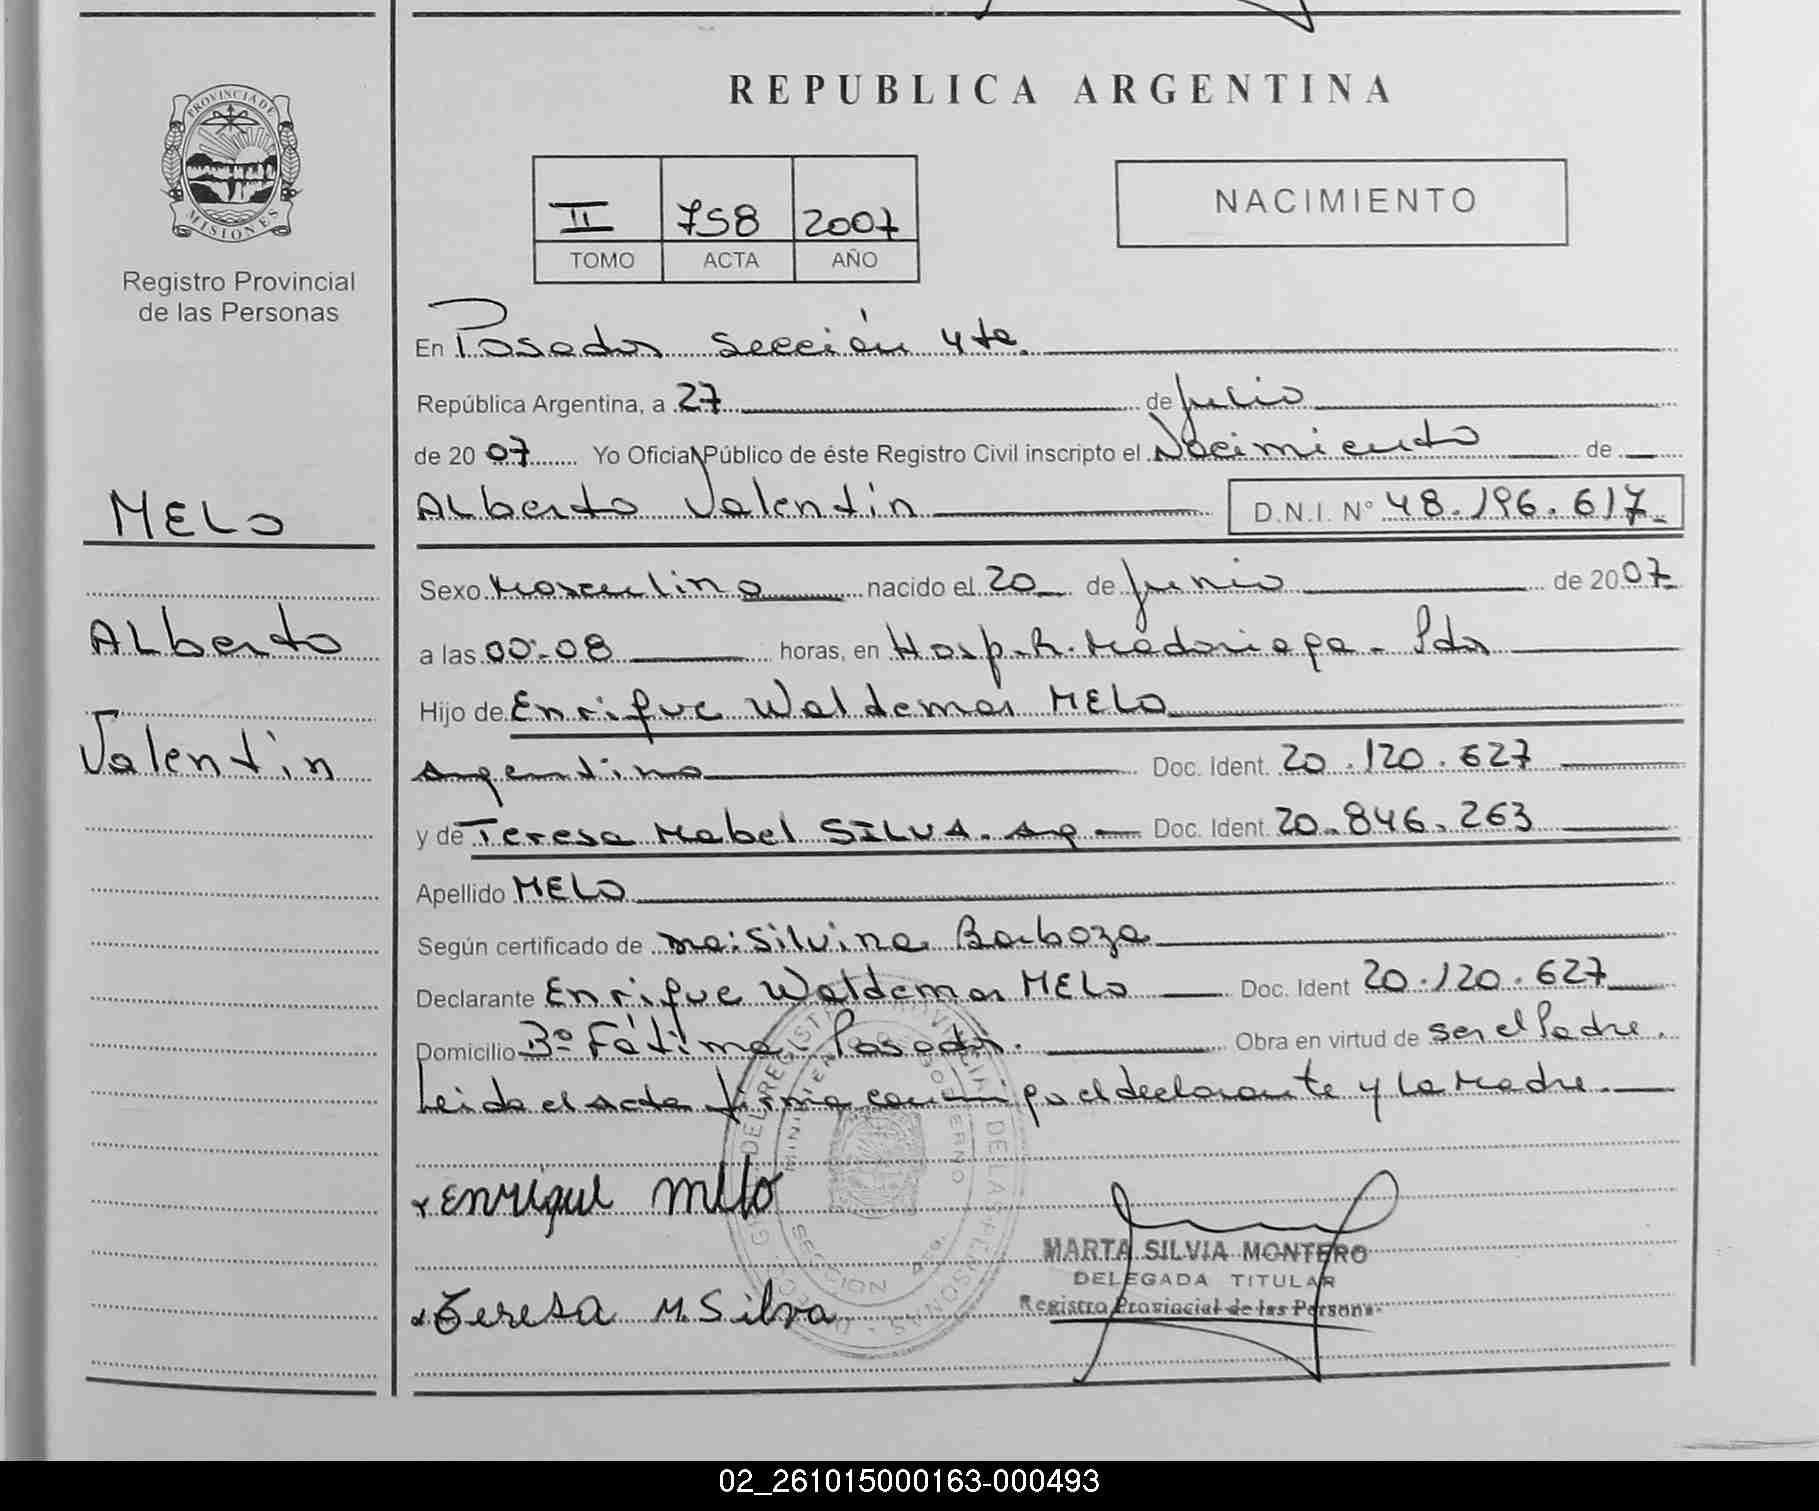 REPUBLICA ARGENTINA
PROVINCIA DE
MISIONES
Registro Provincial
de las Personas
II 758 2007
TOMO ACTA AÑO
NACIMIENTO
En Posadas Sección 4ta.
República Argentina, a 27 de Julio
de 2007 Yo Oficial Público de éste Registro Civil inscripto el Nacimiento de
MELO
ALberto Valentín D.N.I. N° 48.196.617
Sexo Masculino nacido el 20 de Junio de 2007
ALberto
a las 00:08 horas, en Hosp. R. Madariaga - Pdas
Hijo de Enrique Waldemar MELO
Valentín
Argentino Doc. Ident. 20.120.627
y de Teresa Mabel SILVA. Arg Doc. Ident. 20.846.263
Apellido MELO
Según certificado de Ma. Silvina Barboza
Declarante Enrique Waldemar MELO Doc. Ident 20.120.627
Domicilio Bº Fátima - Posadas. Obra en virtud de ser el Padre.
Leída el Acta firma conmigo el declarante y la Madre.
Enrique Melo
MARTA SILVIA MONTERO
DELEGADA TITULAR
Registro Provincial de las Personas
Teresa M. Silva
SECCION 4ta.
02_261015000163-000493